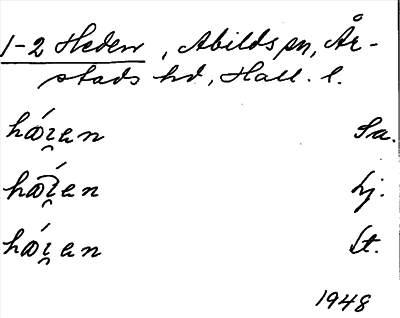 1-2 Heden, Abilds sn, År-
stads hd, Hall. l.
hǽı̯en Sa.
hǽı̯en Lj.
hǽı̯en St.
1948